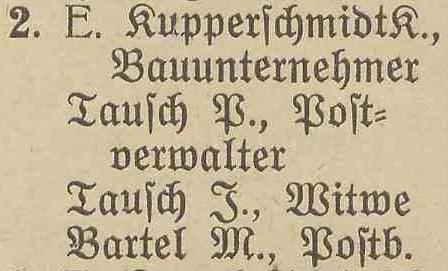 2. E. KupperschmidtK.,
Bauunternehmer
Tausch P., Post-
verwalter
Tausch J., Witwe
Bartel M., Postb.